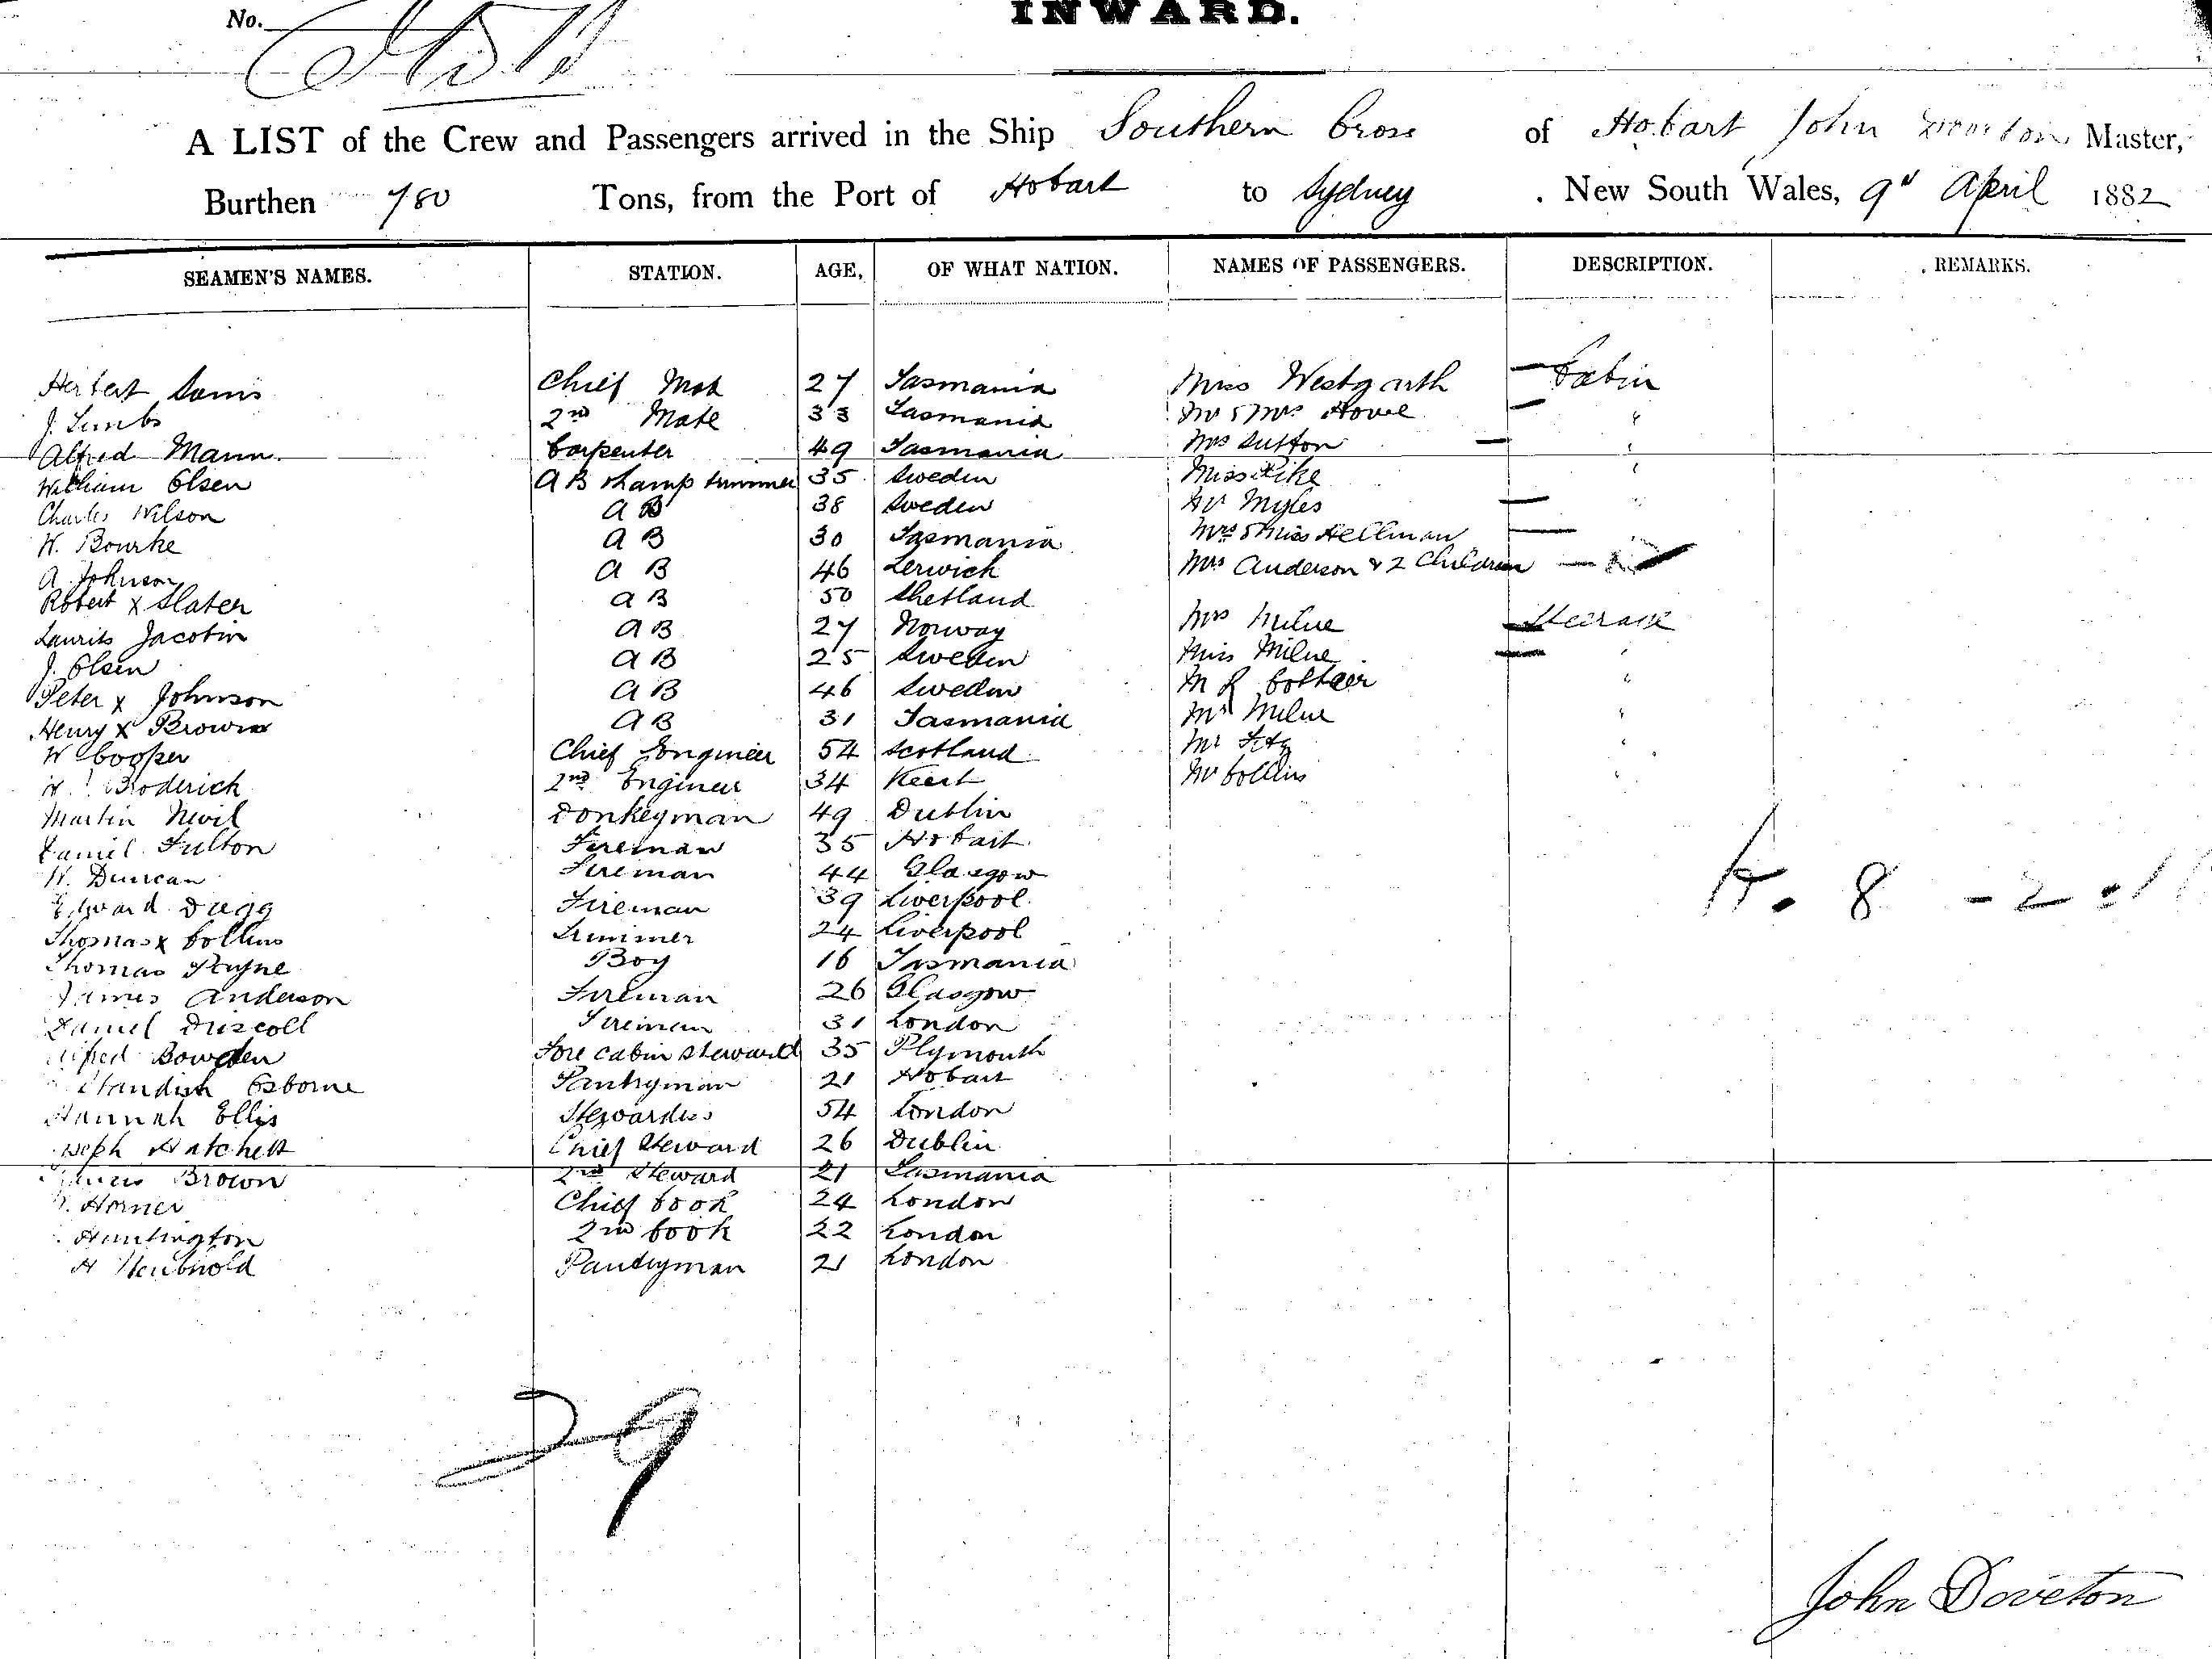 No.
INWARD.
A LIST of the Crew and Passengers arrived in the Ship Southern Cross of Hobart John Doveton Master,
Burthen 780 Tons, from the Port of Hobart to Sydney . New South Wales, 9th April 1882
SEAMEN'S NAMES. STATION. AGE, OF WHAT NATION. NAMES OF PASSENGERS. DESCRIPTION. REMARKS.
Herbert Sams Chief Mate 27 Tasmania Miss Westgarth Cabin
J. 2nd Mate 33 Tasmania Mr & Mrs Howe "
Alfred Mann. Carpenter 49 Tasmania Mrs Sutton "
William Olsen A B & Lamp trimmer 35 Sweden Miss Pike "
Charles Wilson A B 38 Sweden Mr Myles "
W. Bourke A B 30 Tasmania Mrs & Miss Hellman "
A. Johnson A B 46 Lerwick Mrs Anderson & 2 Children
Robert x Slater A B 50 Shetland
Laurits Jacobin A B 27 Norway Mrs Milne Steerage
J. Olsen A B 25 Sweden Miss Milne "
Peter x Johnson A B 46 Sweden M R "
Henry x Brown A B 31 Tasmania Mr Milne "
W Cooper Chief Engineer 54 Scotland Mr "
Broderick 2nd Engineer 34 Kent Mr Collins "
Martin Nevil Donkeyman 49 Dublin
Daniel Fulton Fireman 35 Hobart
W. Duncan Fireman 44 Glasgow
Edward Dugg Fireman 39 Liverpool
Thomas x Collins Trimmer 24 Liverpool
Thomas Payne Boy 16 Tasmania
James Anderson Fireman 26 Glasgow
Daniel Driscoll Fireman 31 London
Alfred Bowden Fore cabin steward 35 Plymouth
Standish Osborne Pantryman 21 Hobart
Hannah Ellis Stewardess 54 London
Joseph Hatchett Chief Steward 26 Dublin
Brown 2nd Steward 21 Tasmania
Horner Chief Cook 24 London
Huntington 2nd Cook 22 London
H Pantryman 21 London
8 - 2 =
29
John Doveton